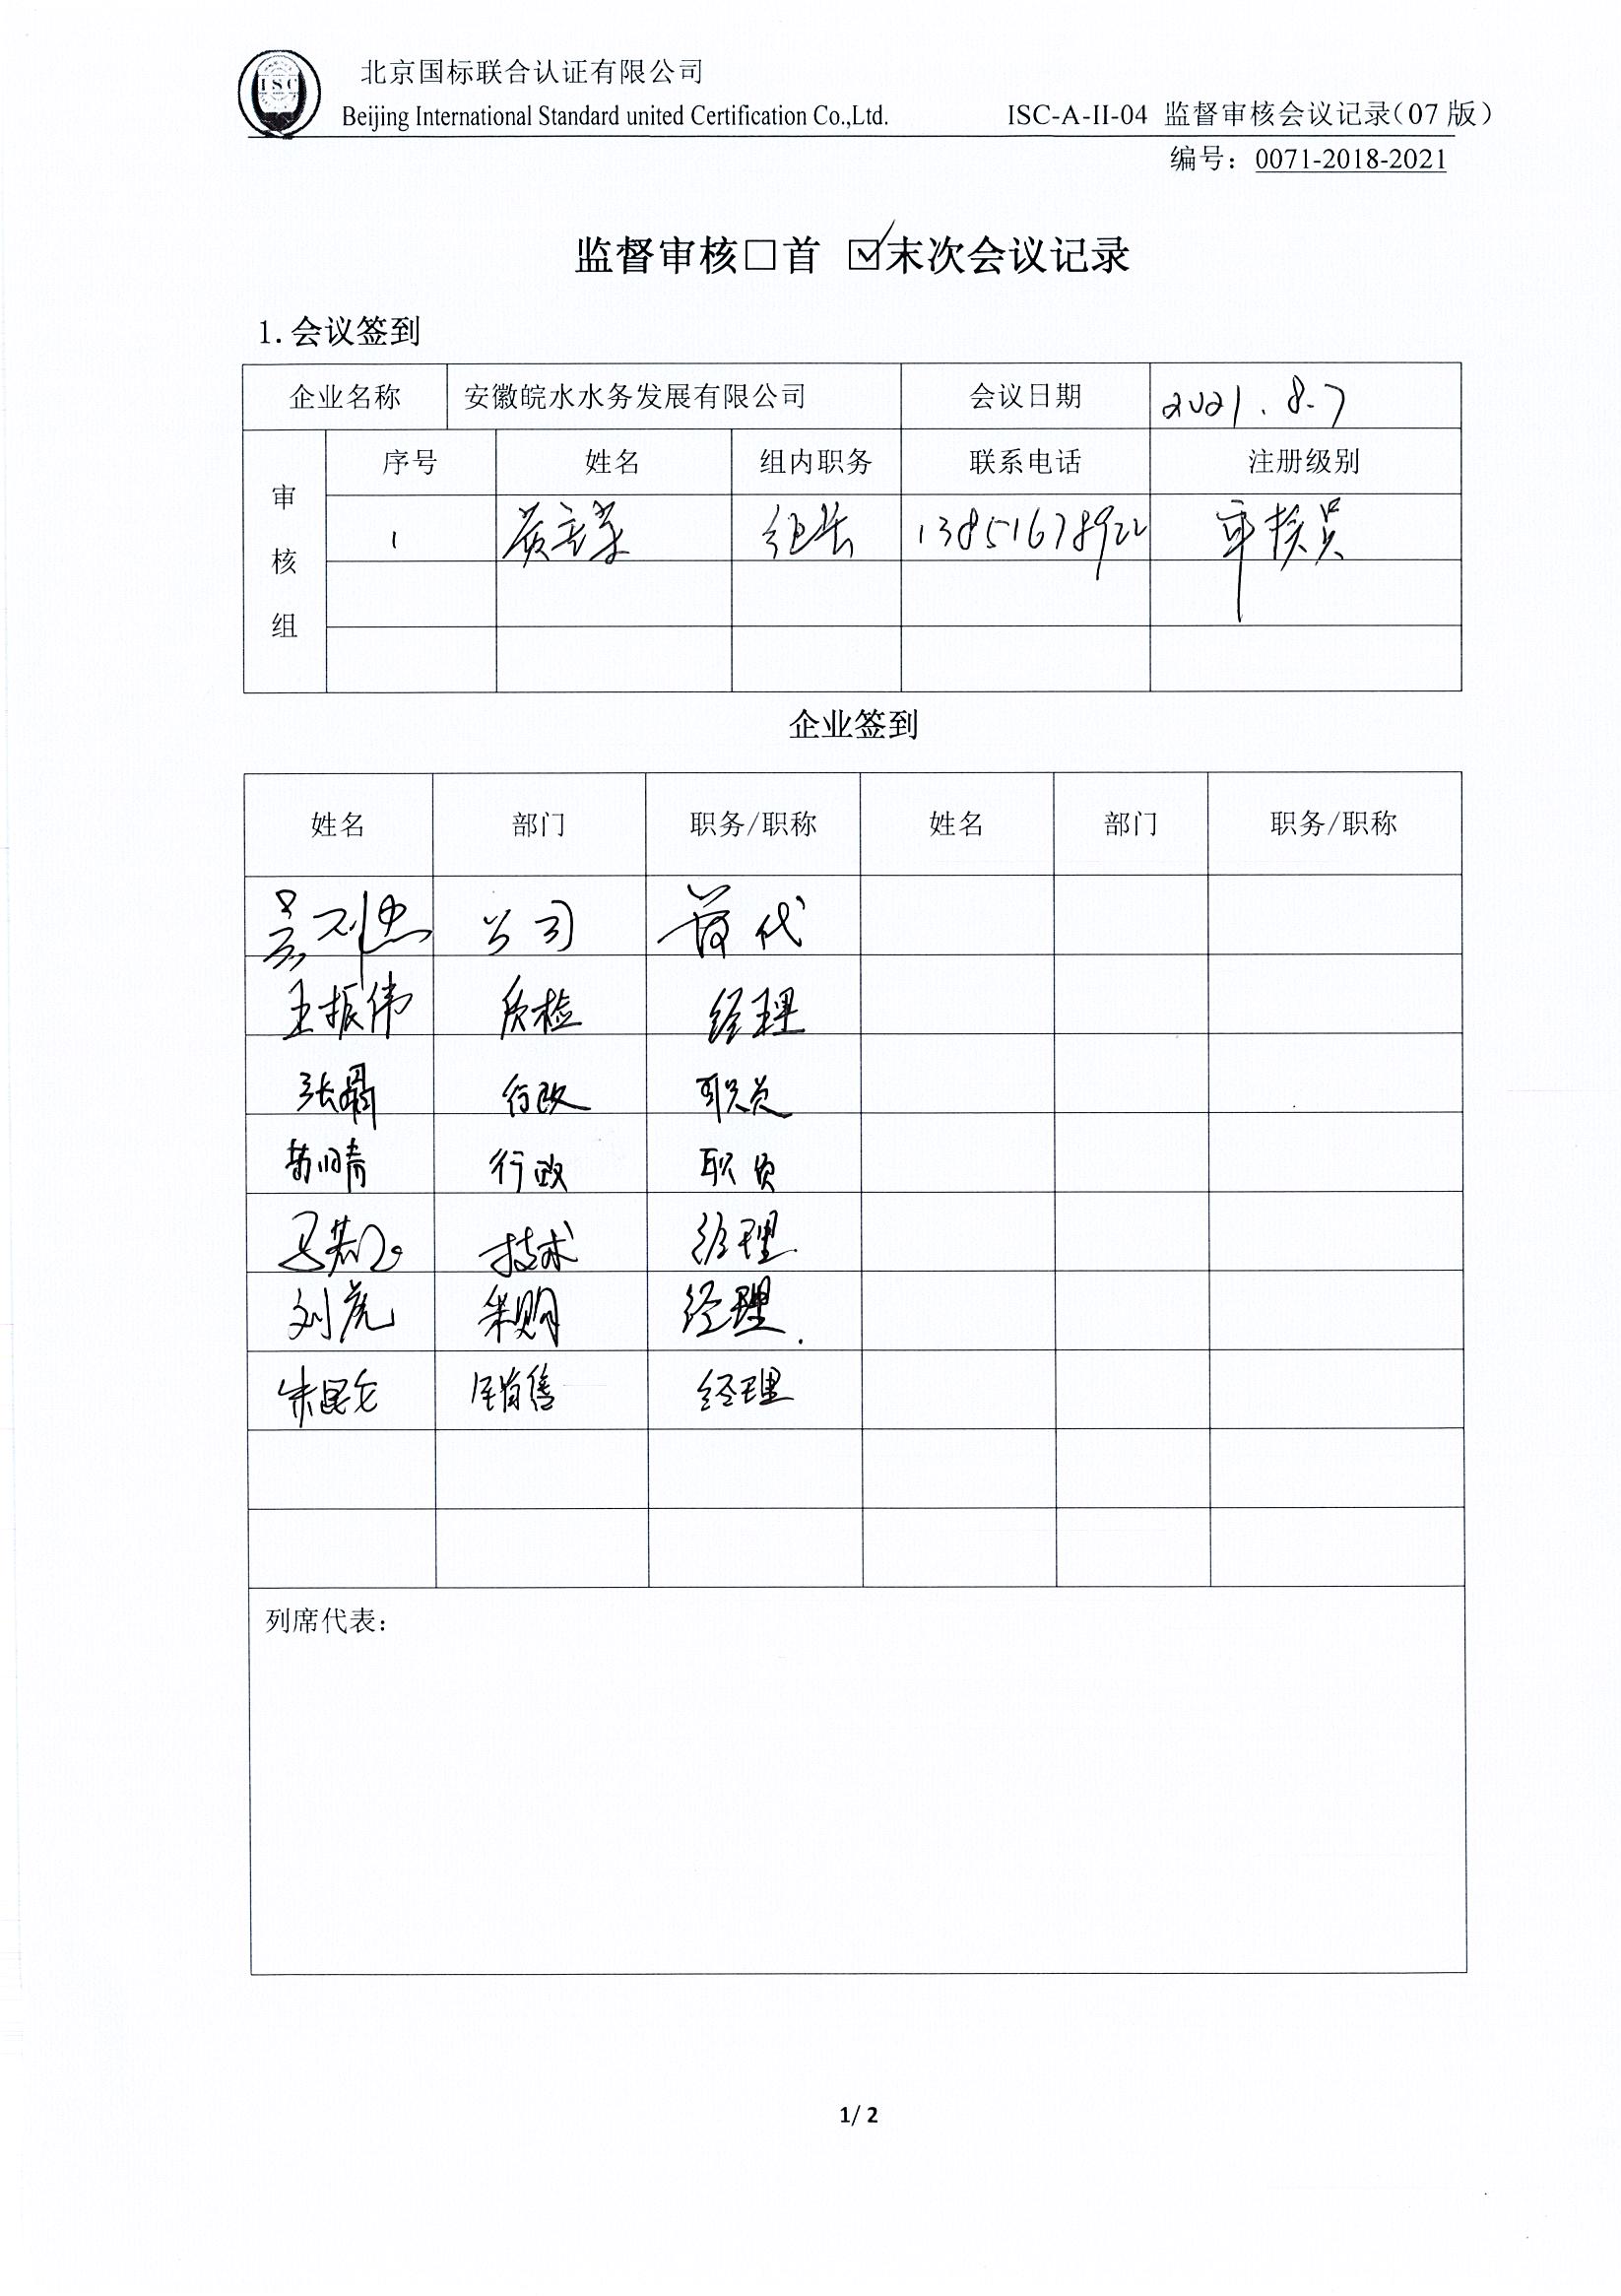 ISC
北京国标联合认证有限公司
Beijing International Standard united Certification Co.,Ltd.
ISC-A-II-04 监督审核会议记录（07 版）
编号：0071-2018-2021
监督审核☐首 ☑末次会议记录
1.会议签到
企业名称 安徽皖水水务发展有限公司 会议日期 2021.8.7
审核组 序号 姓名 组内职务 联系电话 注册级别
1 组长 13851678922 审核员
企业签到
姓名 部门 职务/职称 姓名 部门 职务/职称
公司 管代
王振伟 质检 经理
行政 职员
行政 职员
技术 经理
刘虎 采购 经理.
朱昆仑 销售 经理
列席代表：
1/ 2